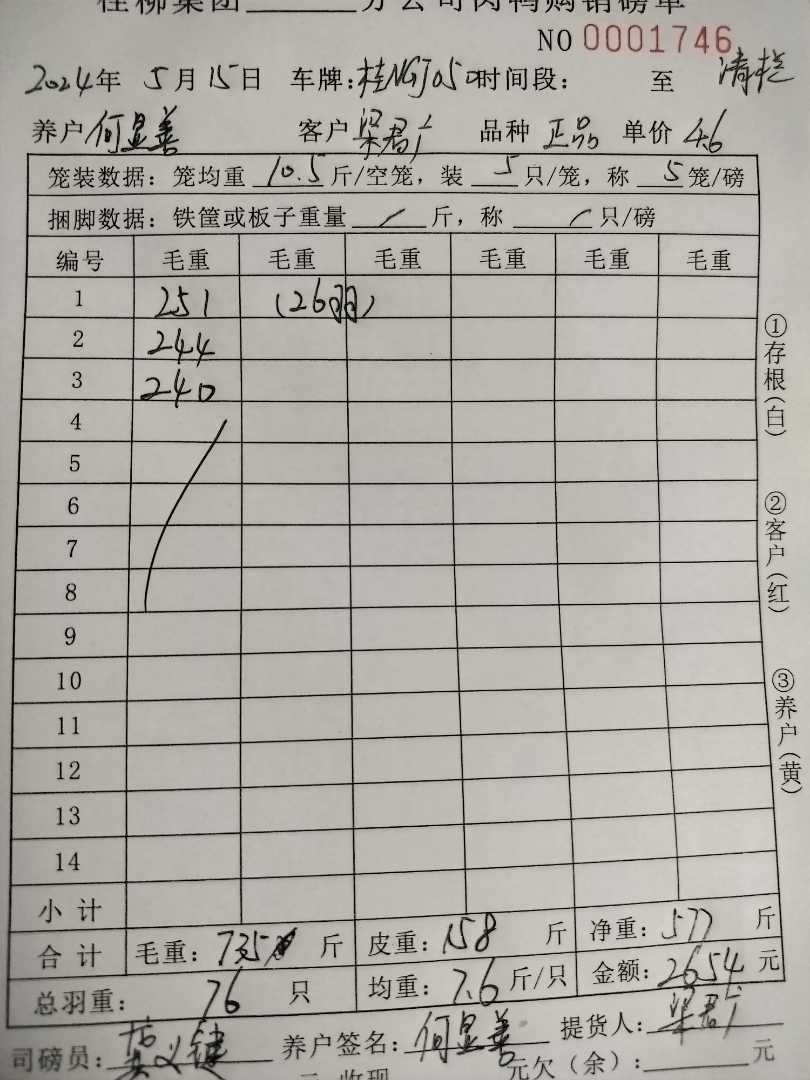 桂柳集团______分公司肉鸭购销磅单
NO 0001746
2024年 5月15日 车牌:桂NGJ050 时间段: 至 清栏
养户 何显善 客户 梁君广 品种 正品 单价 4.6
笼装数据: 笼均重 10.5 斤/空笼, 装 5 只/笼, 称 5 笼/磅
捆脚数据: 铁筐或板子重量 / 斤, 称 / 只/磅
编号 毛重 毛重 毛重 毛重 毛重 毛重
1 251 (26羽)
2 244
3 240
4
5
6
7
8
9
10
11
12
13
14
小计
合计 毛重: 735 斤 皮重: 158 斤 净重: 577 斤
总羽重: 76 只 均重: 7.6 斤/只 金额: 2654 元
司磅员: 义键 养户签名: 何显善 提货人: 梁君广
元 收现 元欠(余): 元
①存根(白)
②客户(红)
③养户(黄)